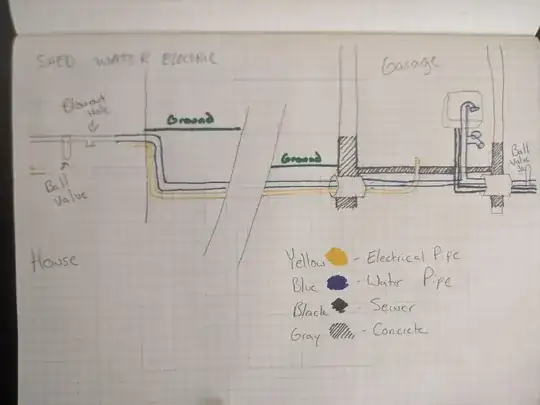 SHED WATER ELECTRIC
Garage
Blowout Hole
Ground
Ground
Ball
Valve
Ball
Valve
House
Yellow - Electrical Pipe
Blue - Water Pipe
Black - Sewer
Gray - Concrete